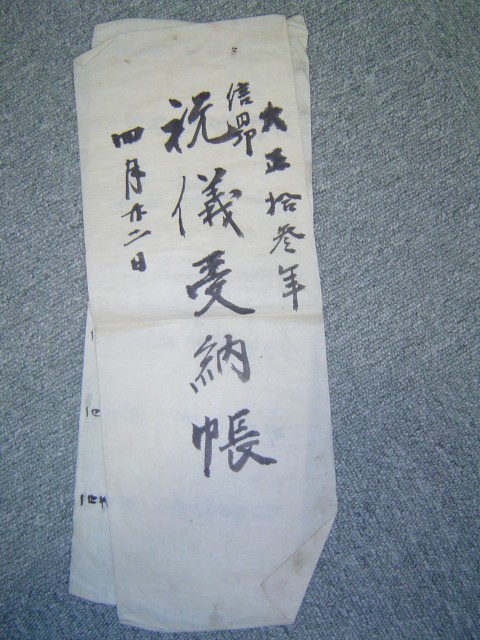 大正拾参年
祝儀受納帳
四月廿二日